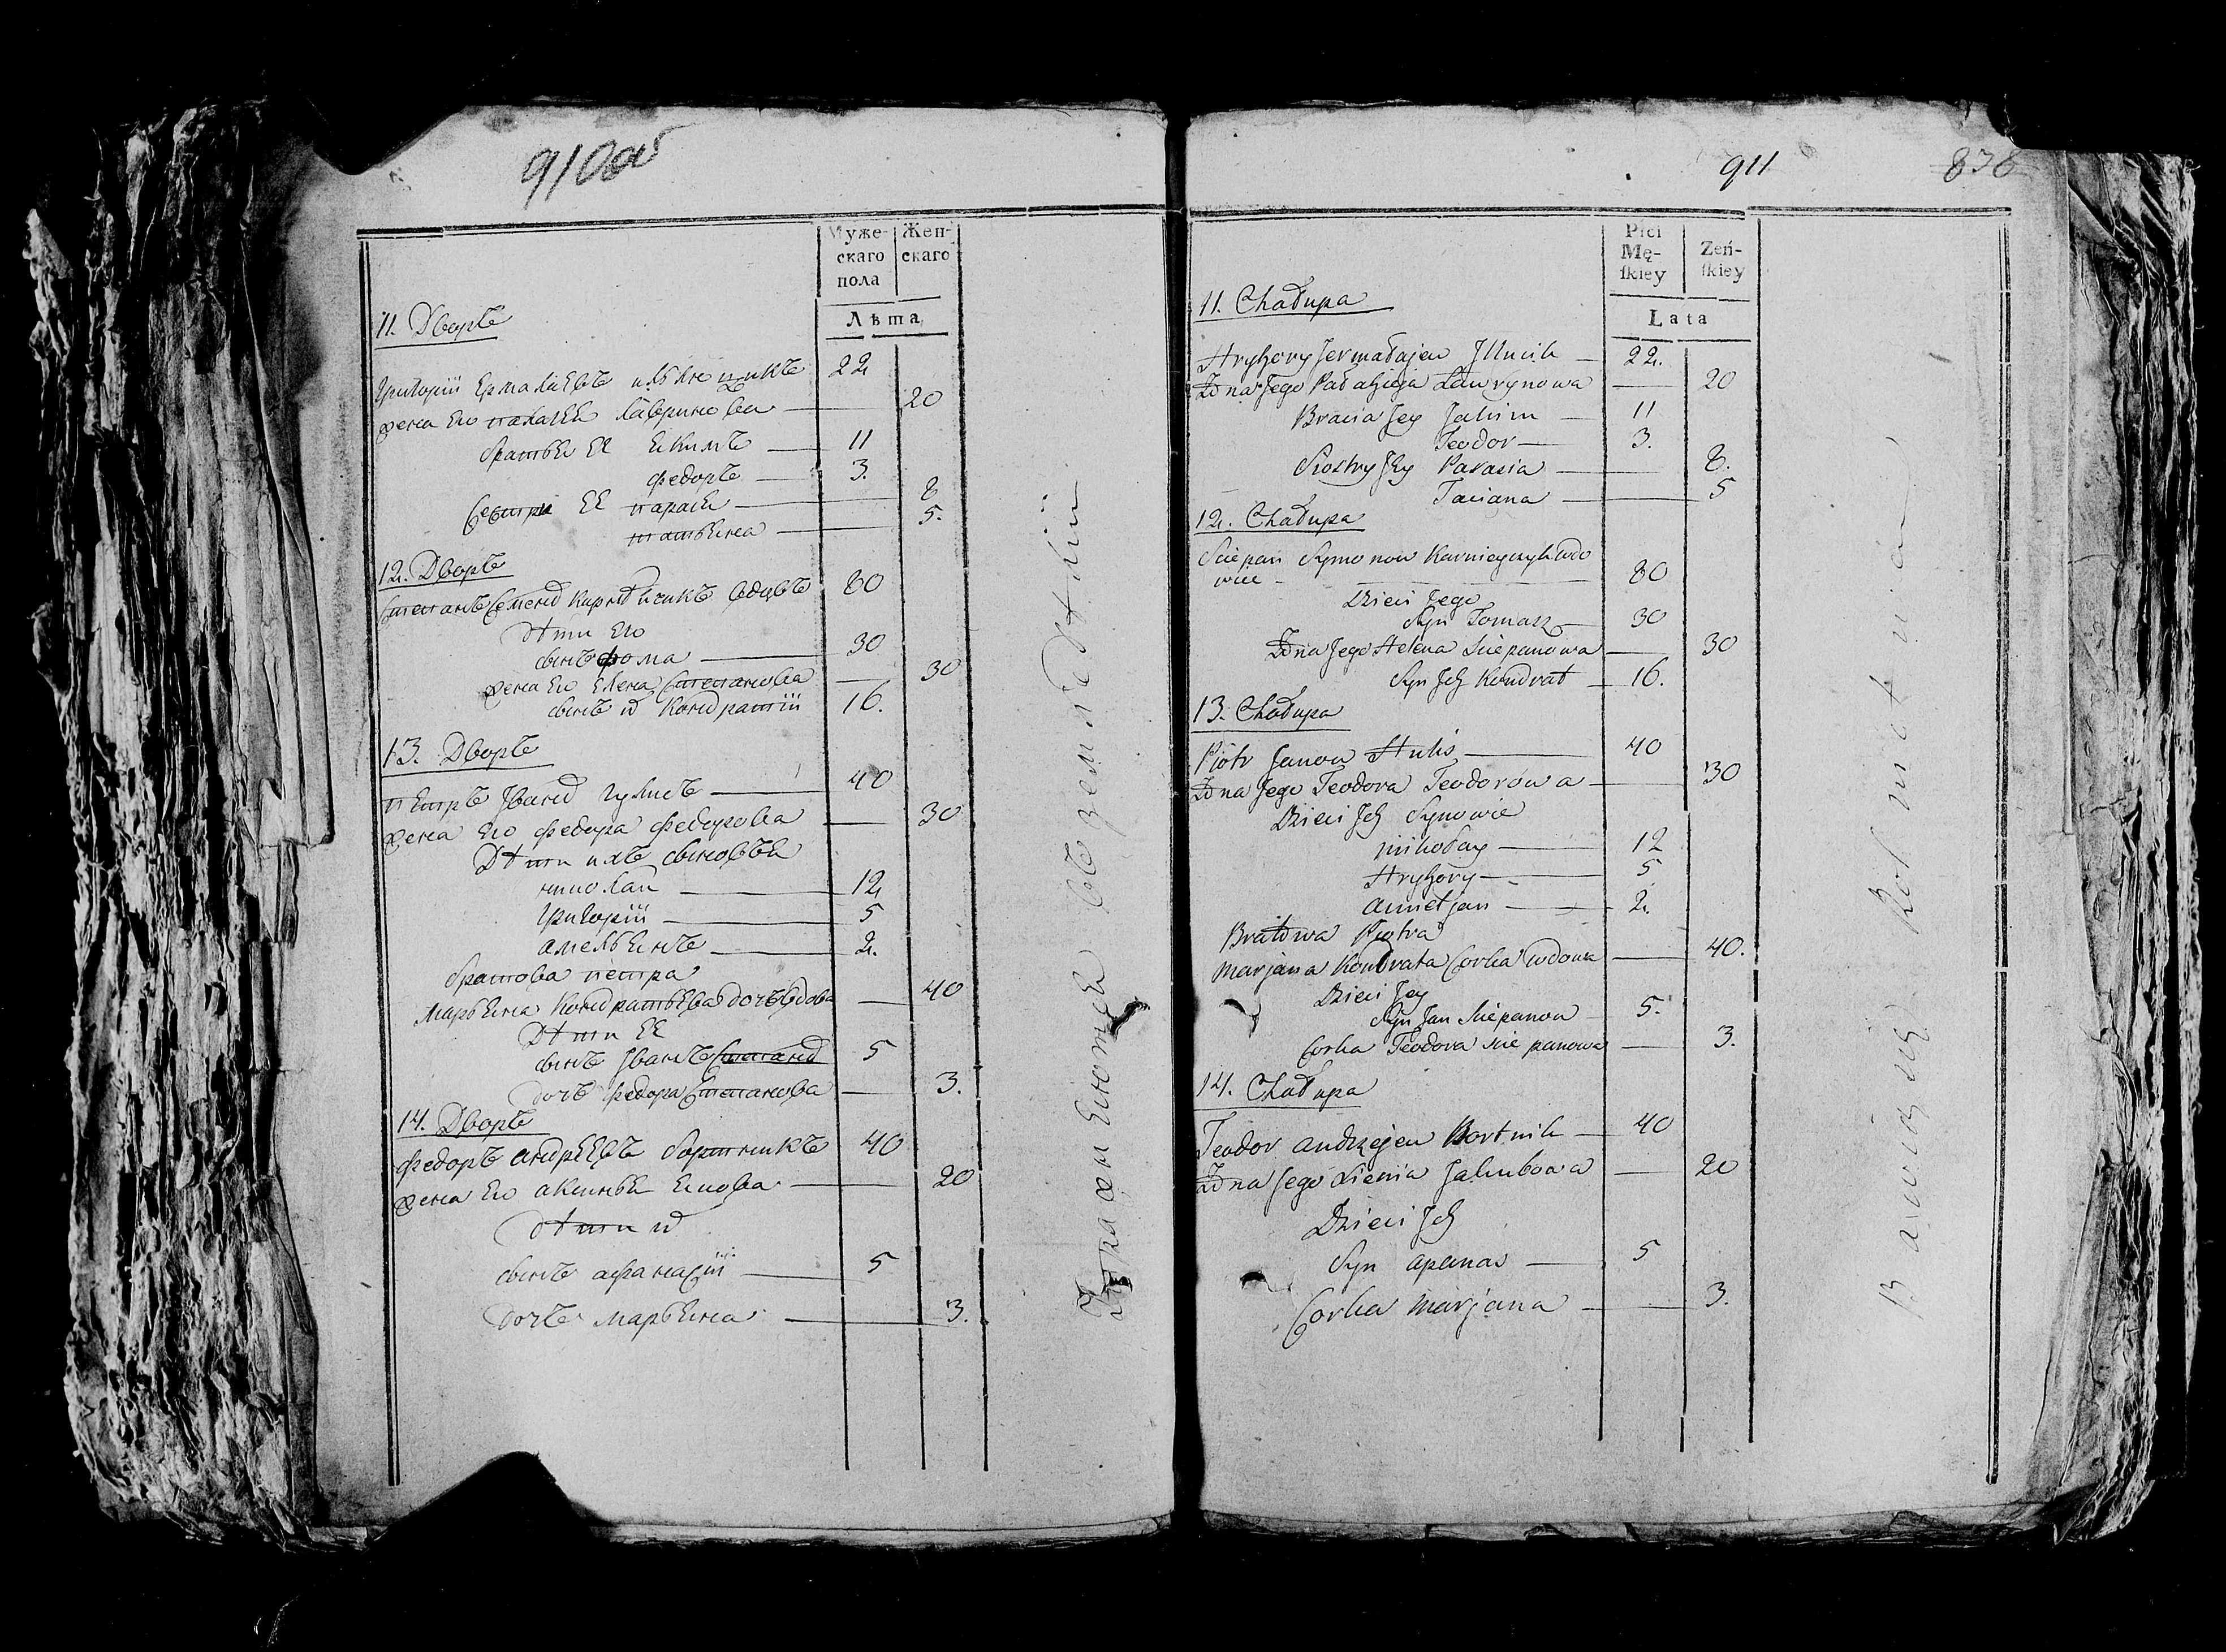 910об
Муже-
скаго
пола
Жен-
скаго
Лѣта
11. Дворъ
Григорій Ермалаевъ 22
жена его палагея Лавринова 20
братья ее екимъ 11
федоръ 3.
Сестры ее парася 8
татьяна 5.
12. Дворъ
Степанъ Семенов вдовъ 80
дѣти его
сынъ фома 30
жена его Елена Степанова 30
сынъ их Кондратій 16.
13. Дворъ
петръ Иванов 40
жена его федора федорова 30
Дѣти ихъ сыновья
николай 12
Григорій 5
амельянъ 2.
братова петра
Марьяна Кондратьева дочь вдова 40
Дѣти ее
сынъ Иванъ Степанов 5
дочь федора Степанова 3.
14. Дворъ
федоръ андреевъ бортникъ 40
жена его аксинья 20
дѣти их
сынъ афанасій 5
дочь марьяна 3.
въ земледѣлии
911
836
Płci
Mę-
ſkiey
Zeń-
ſkiey
Lata
11. Chałupa
Hryhory Jermałajew 22.
Żona Jego Pałahieja Lawrynowa 20
Bracia Jey Jakim 11
Teodor 3.
Siostry Jey Parasia 8.
Taciana 5
12. Chałupa
Sciepan Symonow Karnieyczyk wdo
wiec 80
Dzieci Jego
Syn Tomasz 30
Żona Jego Helena Sciepanowa 30
Syn Jch Kondrat 16.
13. Chałupa
Piotr Janow Hulis 40
Żona Jego Teodora Teodorowa 30
Dzieci Jch Synowie
mikołay 12
Hryhory 5
amieljan 2.
Bratowa Piotra
Marjana Kondrata Corka wdowa 40.
Dzieci Jey
Syn Jan Sciepanow 5.
Corka Teodora Sciepanowa 3.
14. Chałupa
Teodor andrzejew Bortnik 40
Żona Jego Xienia Jakubowa 20
Dzieci Jch
Syn apanas 5
Corka marjana 3.